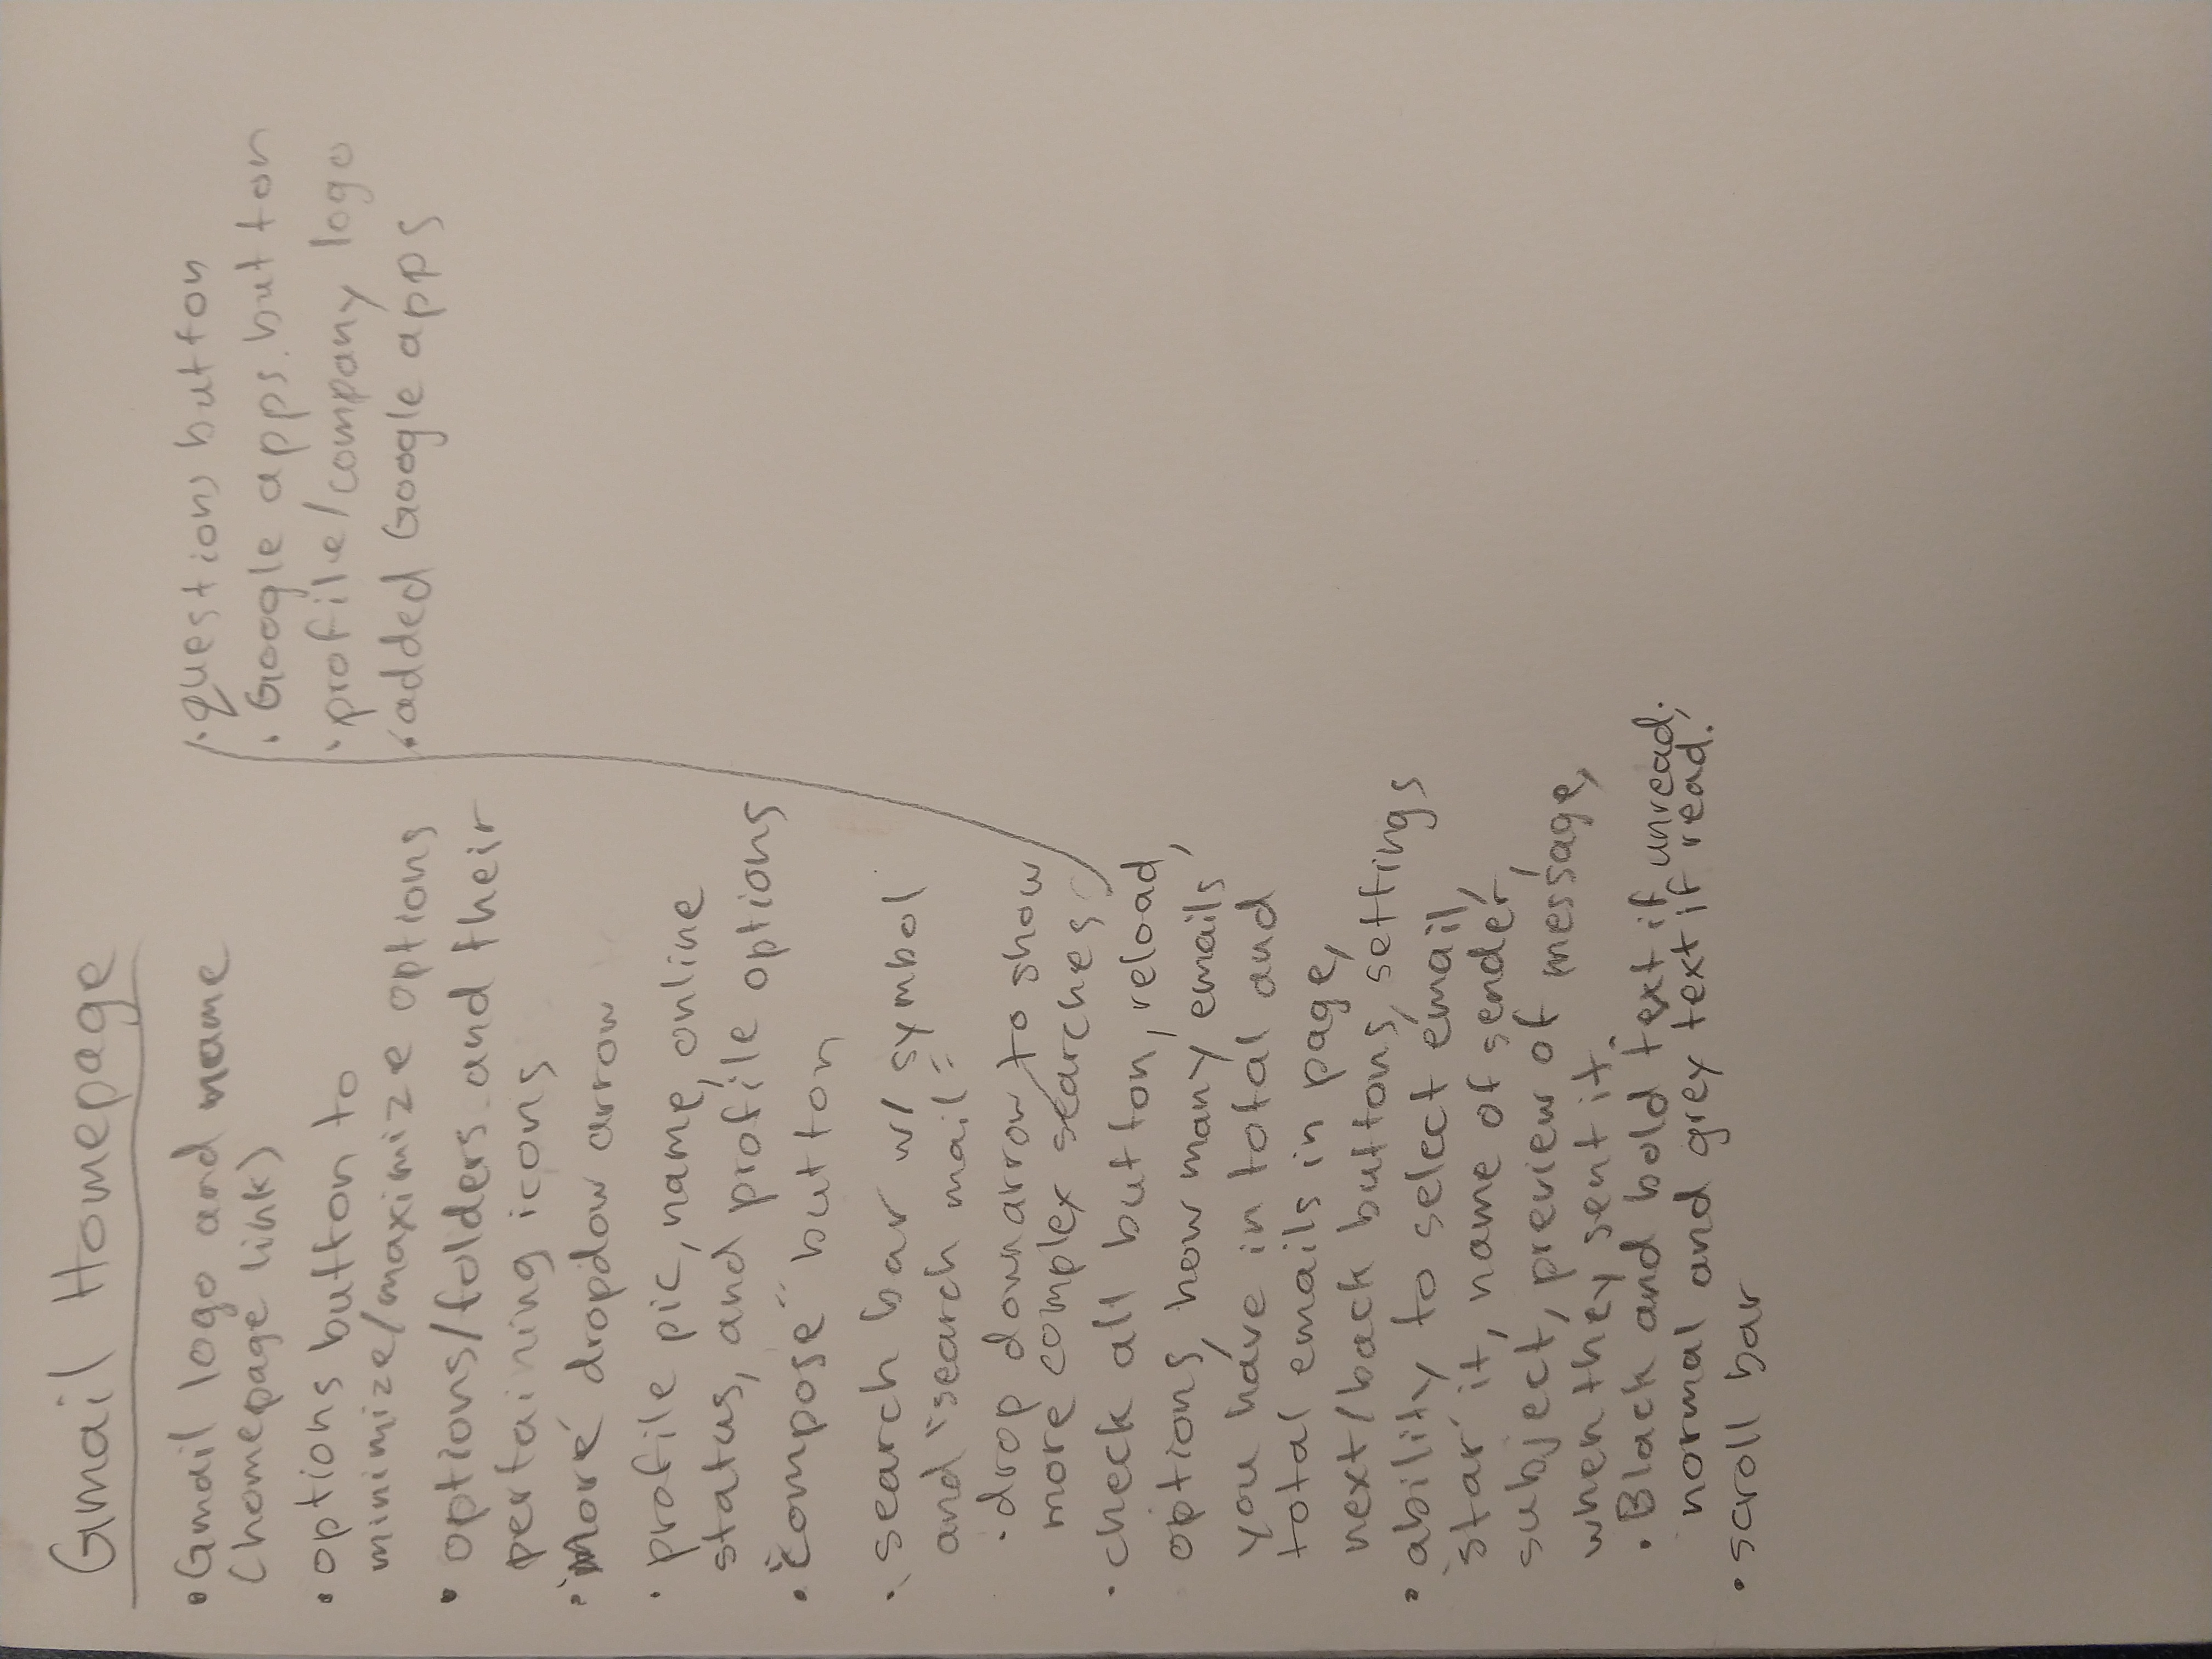 Gmail Homepage
• Gmail logo and name
(homepage link)
• options button to
minimize/maximize options
• options/folders and their
pertaining icons
• "More" dropdow arrow
• profile pic, name, online
status, and profile options
• "compose" button
• search bar w/ symbol
and "search mail"
• drop down arrow to show
more complex searches
• check all button, reload,
options, how many emails
you have in total and
total emails in page,
next/back buttons, settings
• ability to select email,
"star" it, name of sender,
subject, preview of message,
when they sent it.
• Black and bold text if unread;
normal and grey text if read.
• scroll bar
• questions button
• Google apps button
• profile/company logo
• added Google apps